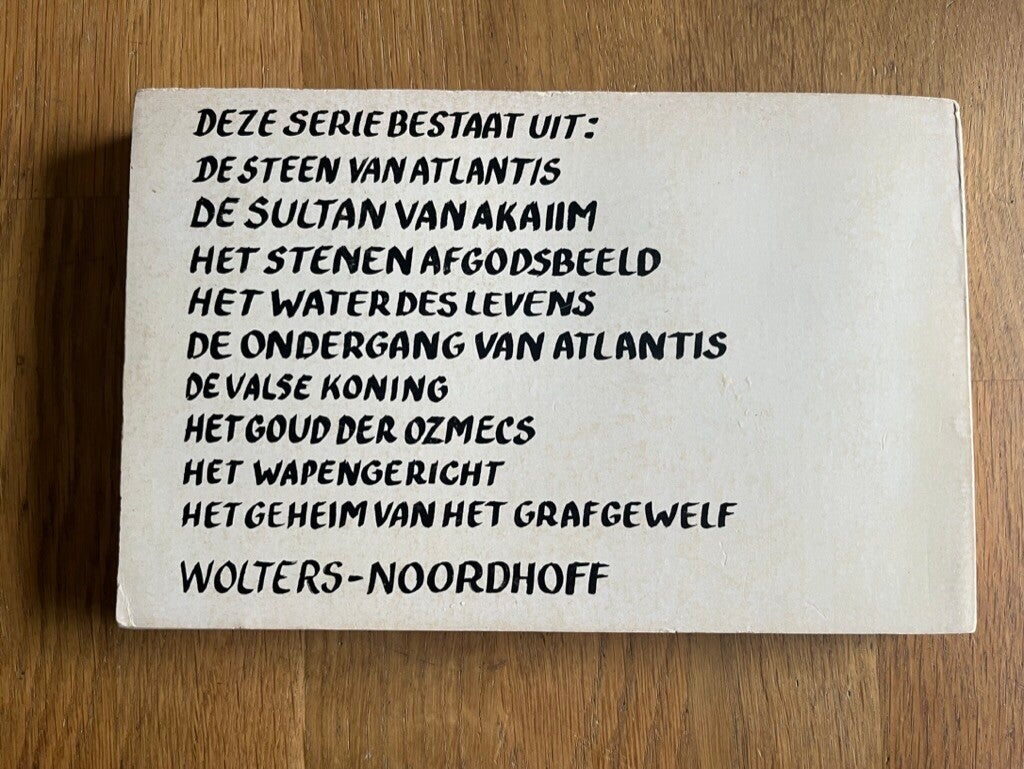 DEZE SERIE BESTAAT UIT:
DE STEEN VAN ATLANTIS
DE SULTAN VAN AKAIIM
HET STENEN AFGODSBEELD
HET WATER DES LEVENS
DE ONDERGANG VAN ATLANTIS
DE VALSE KONING
HET GOUD DER OZMECS
HET WAPENGERICHT
HET GEHEIM VAN HET GRAFGEWELF
WOLTERS-NOORDHOFF